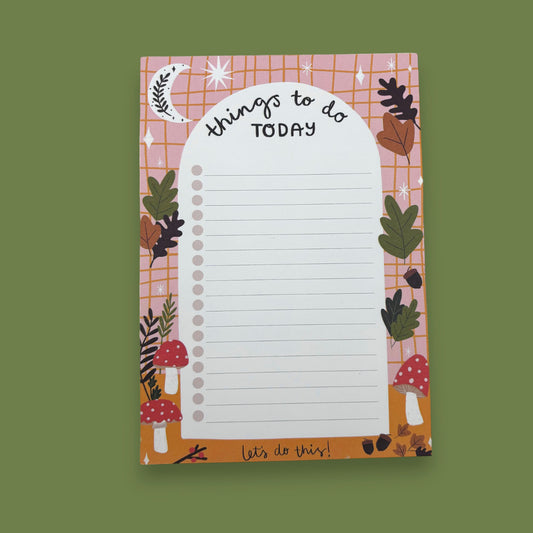 things to do
TODAY
let's do this!